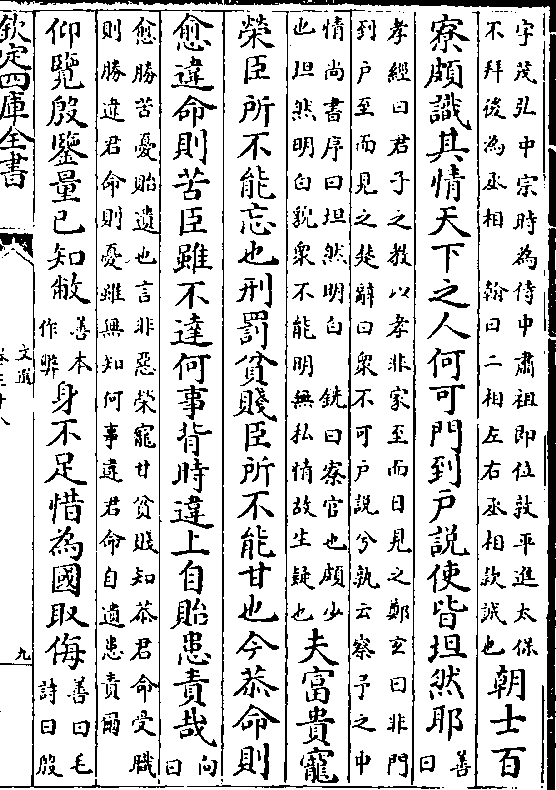 字茂弘中宗時為侍中肅祖即位敦平進太保
不拜後為丞相　翰曰二相左右丞相款誠也
朝士百
寮頗識其情天下之人何可門到户説使皆坦然耶
善
曰
孝經曰君子之教以孝非家至而日見之鄭玄曰非門
到户至而見之楚辭曰衆不可户説兮孰云察予之中
情尚書序曰坦然明白　銑曰寮官也頗少
也坦然明白貌衆不能明無私情故生疑也
夫富貴寵
榮臣所不能忘也刑罰貧賤臣所不能甘也今恭命則
愈違命則苦臣雖不達何事背時違上自貽患責哉
向
曰
愈勝苦憂貽遺也言非惡榮寵甘貧賤知恭君命受職
則勝違君命則憂雖無知何事違君命自遺患責爾
仰覽殷鑒量已知敝
善本
作弊
身不足惜為國取侮
善曰毛
詩曰殷
欽定四庫全書
文選
九